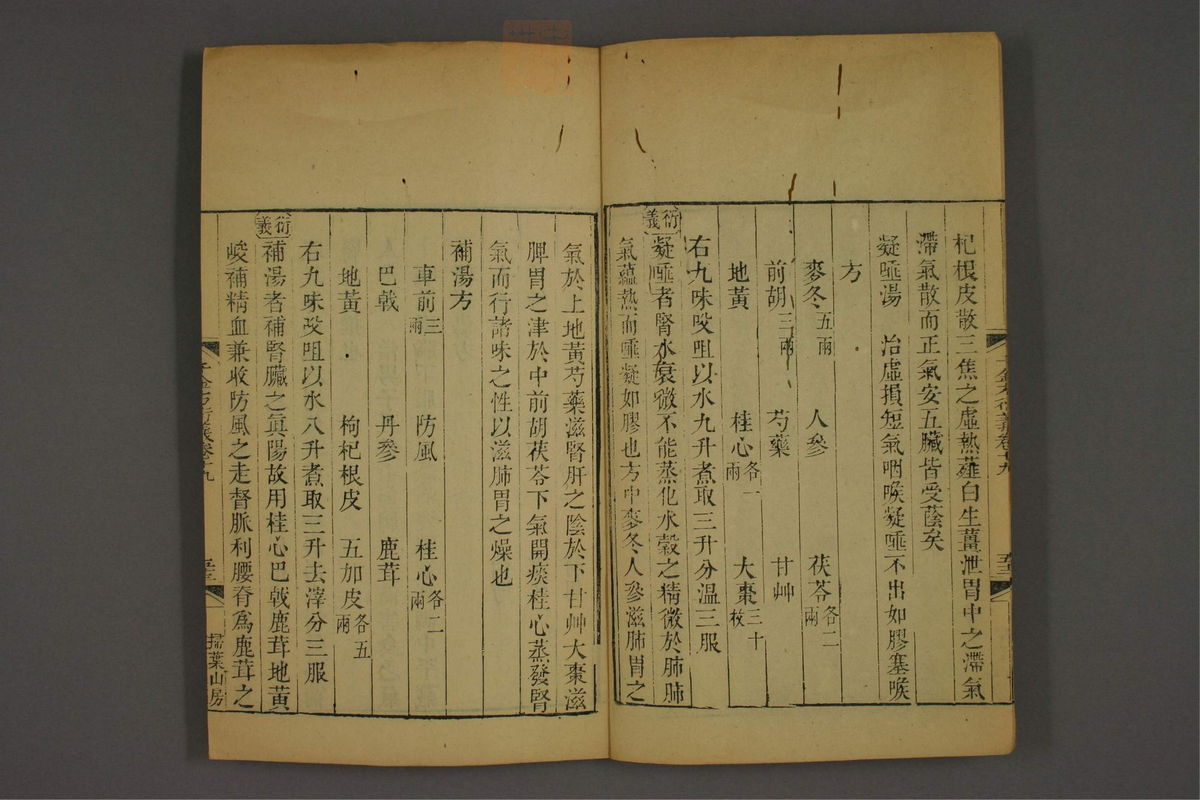 杞根皮散三焦之虛熱薤白生薑泄胃中之滯氣
滯氣散而正氣安五臟皆受蔭矣
凝唾湯 治虛損短氣咽喉凝唾不出如膠塞喉
方
麥冬五兩 人參 茯苓各二兩
前胡三兩 芍藥 甘艸
地黃 桂心各一兩 大棗三十枚
右九味㕮咀以水九升煮取三升分溫三服
衍義 凝唾者腎水衰微不能蒸化水穀之精微於肺肺
氣蘊熱而唾凝如膠也方中麥冬人參滋肺胃之
氣於上地黃芍藥滋腎肝之陰於下甘艸大棗滋
脾胃之津於中前胡茯苓下氣開痰桂心蒸發腎
氣而行諸味之性以滋肺胃之燥也
補湯方
車前三兩 防風 桂心各二兩
巴戟 丹參 鹿茸
地黃 枸杞根皮 五加皮各五兩
右九味㕮咀以水八升煮取三升去滓分三服
衍義 補湯者補腎臟之眞陽故用桂心巴戟鹿茸地黃
峻補精血兼收防風之走督脈利腰脊爲鹿茸之
千金方衍義卷十九 掃葉山房